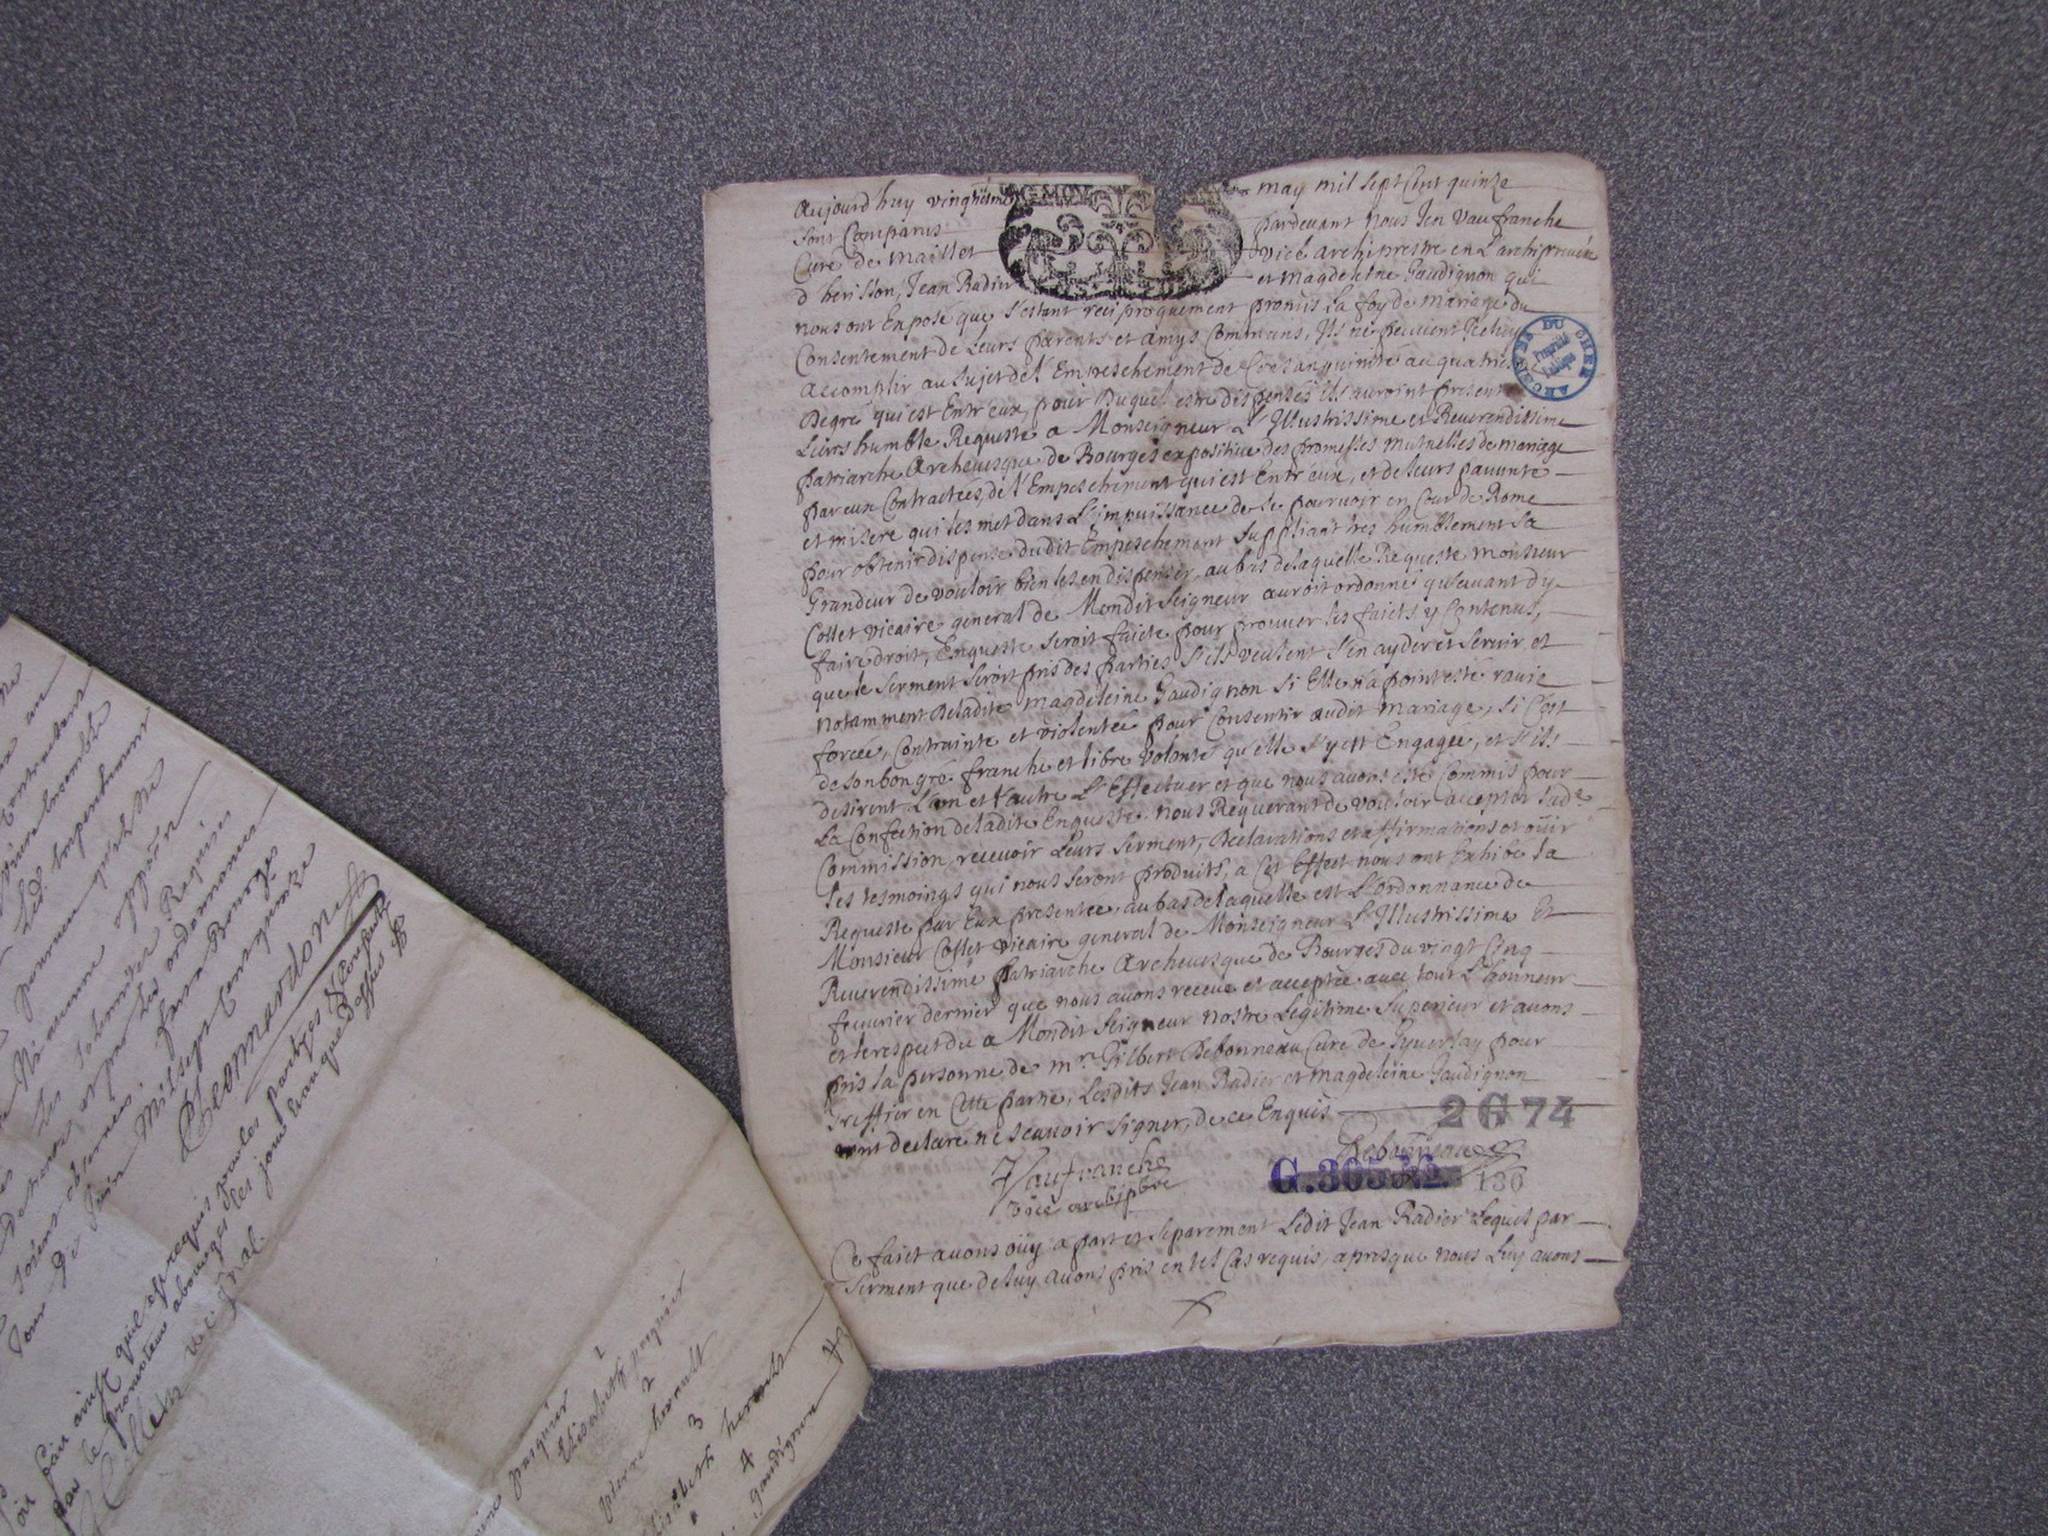 Aujourd'huy vingtiesme may mil sept Cent quinze
sont Comparus pardevant nous Jen Vaufranche
Curé de Maillet vice archiprestre en L'archipreuéré
d'herisson, Jean Radier et Magdeleine Gaudignon qui
nous ont Exposé que s'estant reciproquement promis La foy de Mariage du
Consentement de Leurs parents et amys Communs, Ils ne peuvient
accomplir au sujet de l'Empeschement de Consanguinité au quatries
Degré qui est Entr'eux, pour Duquel estre dispensés ils auroint presenté
Leurs humble Requeste a Monseigneur L'Illustrissime et Reverendissime
patriarche Archevesque de Bourges expositive des promesses mutuelles de mariage
par eux Contractées, de l'Empeschement qui est Entr'eux, et de leurs pauvreté
et misere qui les met dans L'impuissance de se pourvoir en Cour de Rome
pour obtenir dispense dudit Empeschement suppliant tres humblement sa
Grandeur de vouloir bien les en dispenser, au bas delaquelle Requeste Monsieur
Collet vicaire general de Mondit Seigneur auroit ordonné qu'avant d'y
faire droit, Enqueste seroit faicte pour prouver les faicts y Contenus,
que le serment seroit pris des parties s'ils veulent s'en ayder et servir et
notamment deladite Magdeleine Gaudignon si Elle n'a point esté ravie
forcée, Contrainte et violentée pour Consentir audit Mariage, si C'est
de son bon gré franche et libre volonté qu'elle s'y est Engagée, et s'ils
desirent L'un et l'autre L'Effectuer et que nous avons esté Commis pour
La Confection deladite Enqueste. nous Requerant de vouloir accepter lade
Commission, recevoir Leurs serment, Declarations et affirmations et oüir
les tesmoings qui nous seront produits, a Cet Effect nous ont Exhibé la
Requeste par Eux presentée, au bas delaquelle est L'ordonnance de
Monsieur Collet vicaire general de Monseigneur L'Illustrissime Et
Reverendissime patriarche Archevesque de Bourges du vingt Cinq
fevvrier dernier que nous avons receue et acceptée avec tout L'honneur
et le respect du a Mondit Seigneur nostre Legitime Superieur et avons
pris la personne de mr. Gilbert Debonneau Curé de pour
Greffier en Cette partie, Lesdits Jean Radier et Magdeleine Gaudignon
ont declaré ne scavoir signer, de ce Enquis
2 G 74
Vaufranche Debonneau
G. 305 130
vice archipbre
Ce faict avons oüy a part et separement Ledit Jean Radier Lequel par
serment que deluy avons pris en tel Cas requis, apres que nous Luy avons
ARCHIVES DU CHER
Propriété
Publique
contractans
vivre ensemble
Lesd. Impertinant
pourveu
Requis
ordonnances
Bourges
Juin Mil sept Cent quinze
fait ainsy quil est requis par les partyes
par le promoteur a bourges les jour et an que dessus
Collet vic. gnal.
pasquier
2
Elisabeth pasquier
2
pierre herault
3
Elisabeth herault
4
gaudignon